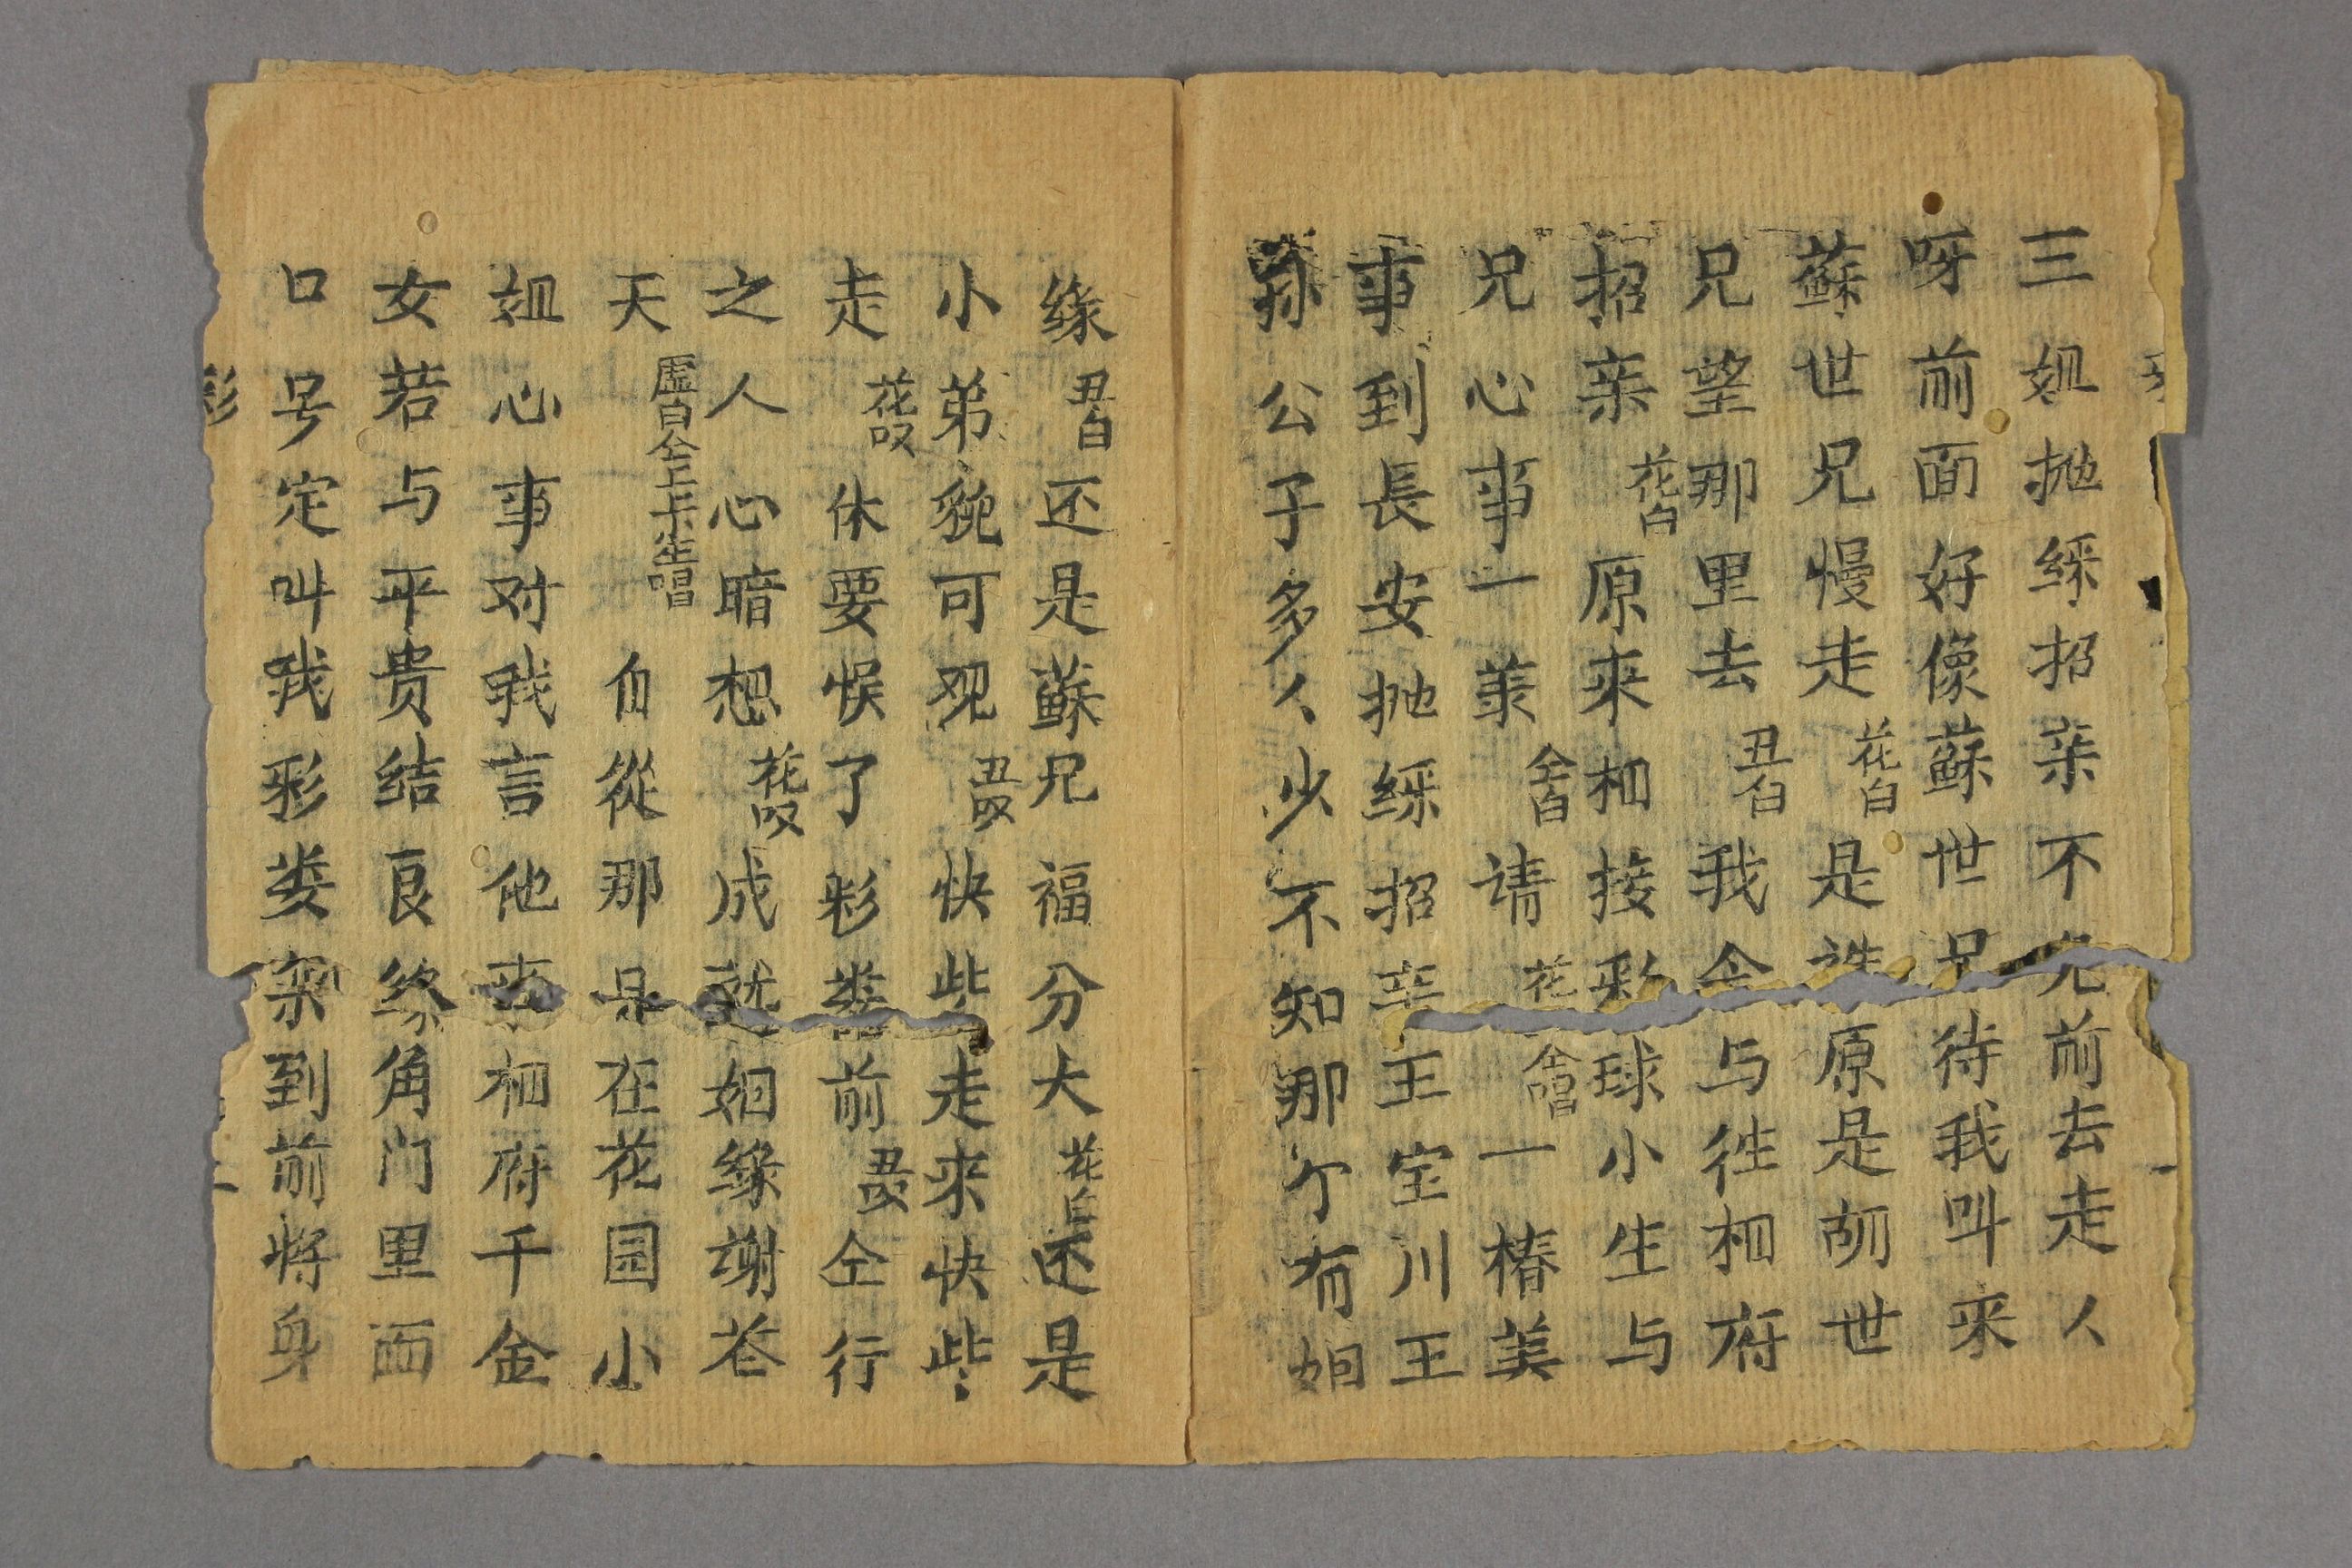 三姐抛綵招亲不免前去走人
呀前面好像蘇世兄待我叫来
蘇世兄慢走花白是誰原是胡世
兄望那里去丑白我仝与徃相府
招亲花白原来相接彩球小生与
兄心事一羕仝白请花仝唱一椿美
事到長安抛綵招亲王宝川王
孫公子多人少不知那个有姻
缘丑白还是蘇兄福分大花白还是
小弟貌可观丑叹快些走来快些
走花叹休要悮了彩娄前丑叹仝行
之人心暗想花叹成就姻缘謝苍
天虚白仝上下生唱自從那日在花园小
姐心事对我言他乘相府千金
女若与平贵结良缘角门里面
口号定叫我彩娄来到前将身
彩